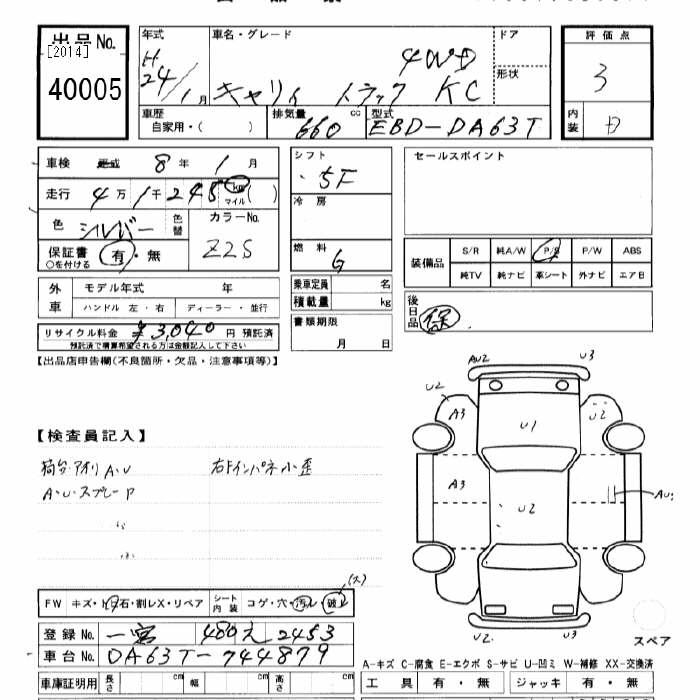 出品No.
[2014]
40005
年式
H
24/1月
車名・グレード
4WD
キャリィ トラック KC
ドア
形状
車歴
自家用・( )
排気量
660 cc
型式
EBD-DA63T
評価点
3
内装
D
車検 平成 8年 1月
走行 4万 1千 245 km マイル ( )
色 シルバー 色替
カラーNo.
Z2S
保証書
○を付ける
有・無
シフト
5F
冷房
燃料
G
セールスポイント
装備品
S/R 純A/W P/S P/W ABS
純TV 純ナビ 革シート 外ナビ エアB
外車
モデル年式 年
ハンドル 左・右 ディーラー・並行
乗車定員 名
積載量 kg
後日品 保
リサイクル料金 ¥3,040 円 預託済
預託済で精算希望される方は金額記入して下さい
書類期限
月 日
【出品店申告欄(不良箇所・欠品・注意事項等)】
AU2 U3
U2 A3 U1 U2
【検査員記入】
荷台・アオリ A・U 右ドインパネ小歪
A・U・スプレーP
A3 U2 AU2
U2 U3
スペア
(大)
FW キズ・ト石・割レX・リペア シート内装 コゲ・穴・汚レ・破レ
登録No. 一宮 480え 2453
車台No. DA63T-744879
A-キズ C-腐食 E-エクボ S-サビ U-凹ミ W-補修 XX-交換済
車庫証明用 長さ cm 幅 cm 高さ cm
工具 有・無 ジャッキ 有・無